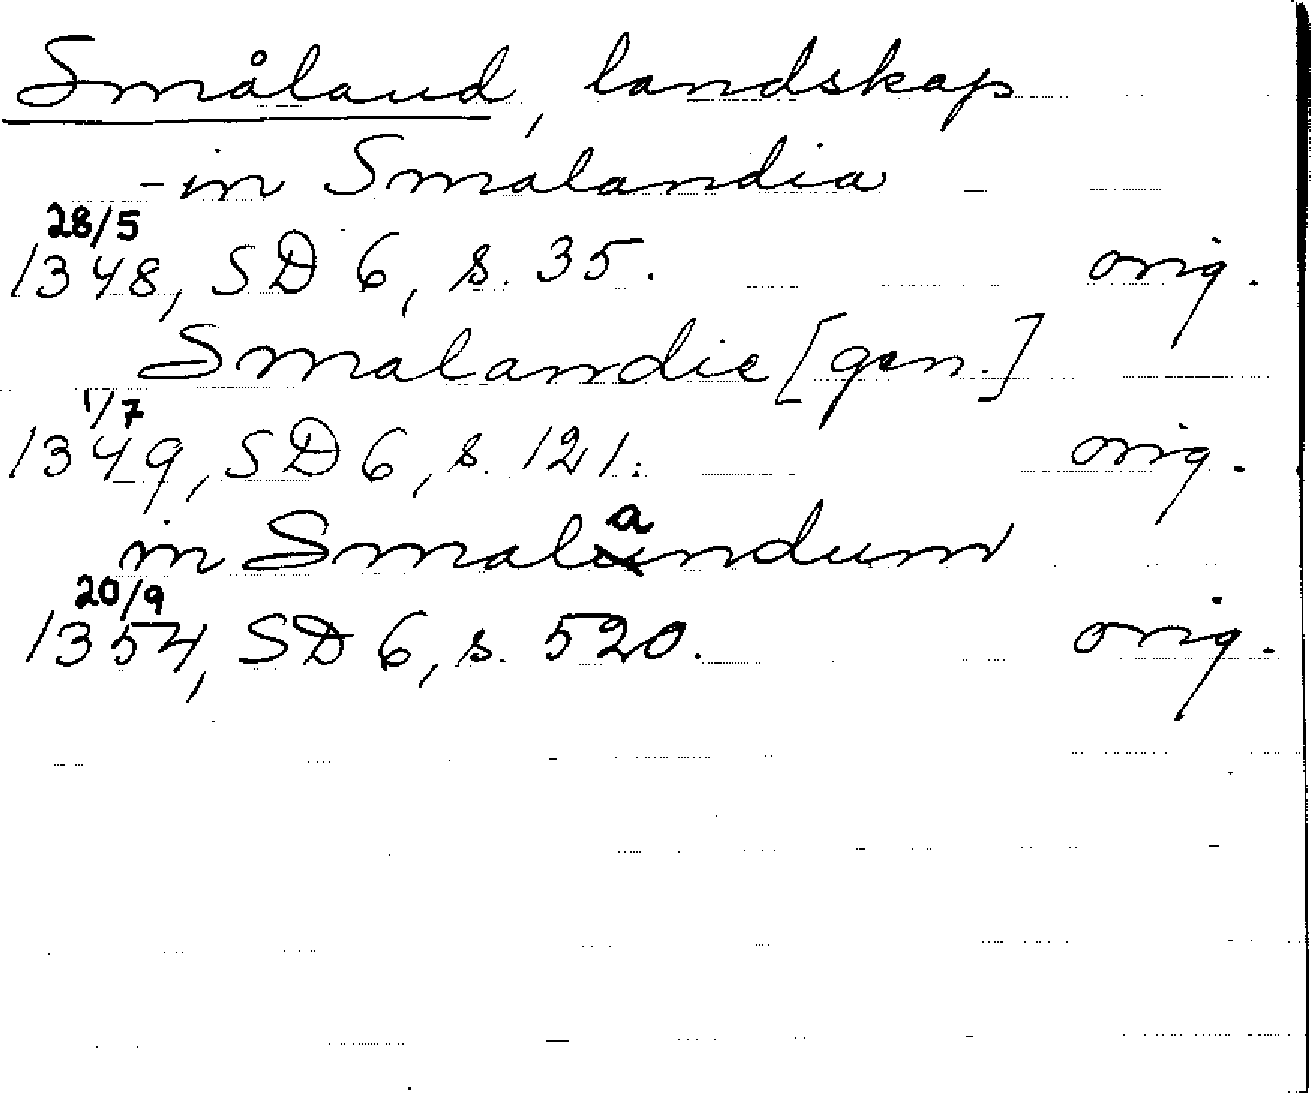 Småland, landskap
- in Smalandia
28/5
1348, SD 6, s. 35. orig.
Smalandie [gen.]
1/7
1349, SD 6, s. 121. orig.
in Smalandum
20/9
1354, SD 6, s. 520. orig.